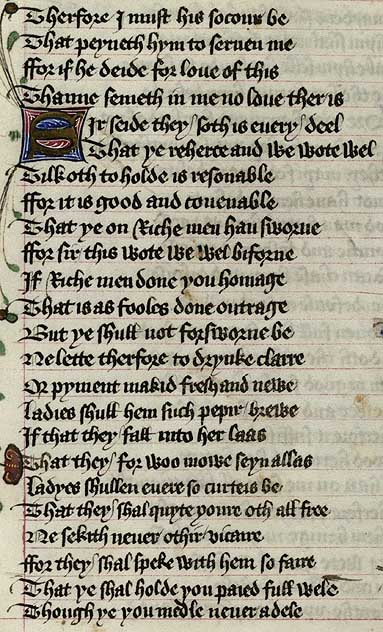 Therfore I must his socour be
That peyneth hym to seruen me
ffor if he deide for loue of this
Thanne semeth in me no loue ther is
Sir seide they soth is euery deel
That ye reherce and we wote wel
Thilk oth to holde is resonable
ffor it is good and couenable
That ye on Riche men han sworne
ffor sir this wote we wel biforne
If Riche men done you homage
That is as fooles done outrage
But ye shull not forsworne be
Ne lette therfore to drynke clarre
Or pyment makid fresh and newe
Ladies shull hem such pepir brewe
If that they fall into her laas
That they for woo mowe seyn allas
Ladyes shullen euere so curteis be
That they shal quyte youre oth all free
Ne sekith neuer othir vicaire
ffor they shal speke with hem so faire
That ye shal holde you paied full wele
Though ye you medle neuer a dele